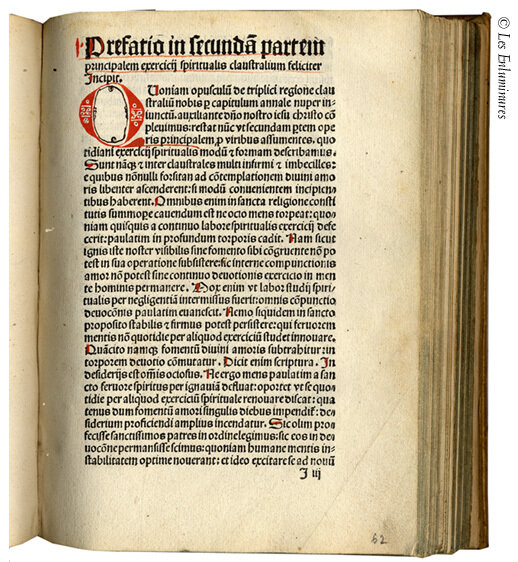 Prefatio in secundā partem
principalem exercicij spiritualis claustralium feliciter
Incipit.
QUoniam opusculū de triplici regione clau
straliū nobis ꝑ capitulum annale nuper in
iunctū auxiliante dn̄o nostro iesu christo cō
pleuimus: restat nūc vt secundam ꝑtem ope
ris principalem ꝓ viribus assumentes. quo
tidiani exercicij spiritualis modū & formam describamus.
Sunt nāqꝫ & inter claustrales multi infirmi & imbecilles:
e quibus nōnulli forsitan ad cōtemplationem diuini amo
ris libenter ascenderent: si modū conuenientem incipien
tibus haberent. Omnibus enim in sancta religione consti
tutis summope cauendum est ne ocio mens torpeat: quo/
niam quisquis a continuo labore spiritualis exercicij defe
cerit: paulatim in profundum torporis cadit. Nam sicut
ignis iste noster visibilis sine fomento sibi cōgruente nō po
test in sua operatione subsistere: sic interne compunctionis
amor nō potest sine continuo deuotionis exercicio in men
te hominis permanere. Mox enim vt labor studij spiri/
tualis per negligentiā intermissus fuerit: omnis cōpunctio
deuocōnis paulatim euanescit. Nemo siquidem in sancto
proposito stabilis & firmus potest persistere: qui feruorem
mentis nō quotidie per aliquod exerciciū studet innouare.
Quācito namqꝫ fomentū diuini amoris subtrahitur: in
torporem deuotio cōmutatur. Dicit enim scriptura. In
desiderijs est om̄is ociosus. Ne ergo mens paulatim a san
cto feruore spiritus per ignauiā defluat: oportet vt se quo
tidie per aliquod exerciciū spirituale renouare discat: qua
tenus dum fomentū amoris singulis diebus impendit: de/
siderium proficiendi amplius incendatur. Sic olim pro/
fecisse sanctissimos patres in ordine legimus: sic eos in de/
uocōne permansisse scimus: quoniam humane mentis in/
stabilitatem optime nouerant: et ideo excitare se ad nouū
I iij
62
© Les Enluminures